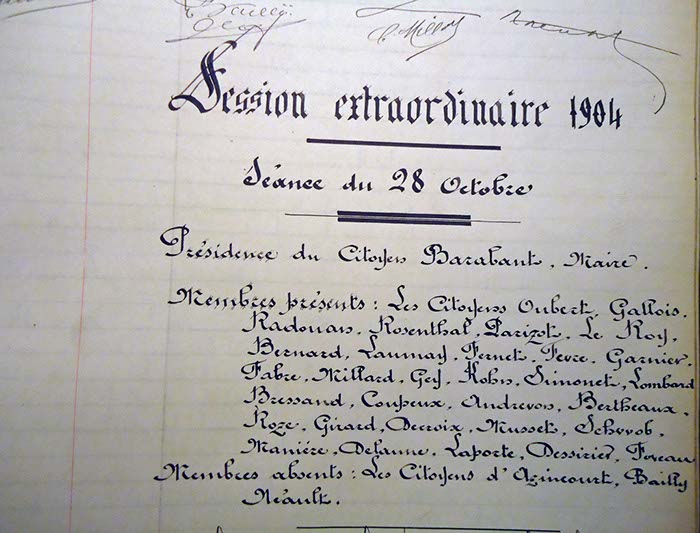 Bailly
Session extraordinaire 1904
Séance du 28 Octobre
Présidence du Citoyen Barabant, Maire.
Membres présents : Les Citoyens Oubert, Gallois.
Radouan, Rosenthal, Parizot, Le Roy,
Bernard, Launay, Fernet, Fevre, Garnier,
Fabre, Millard, Gey, Kohn, Simonet, Lombard
Bressand, Coupeux, Andrevon, Bertheaux,
Roze, Girard, Decroix, Mussets, Schwob,
Manière, Delaune, Laporte, Dessirier, Foveau
Membres absents : Les Citoyens d'Azincourt, Bailly
Néault.